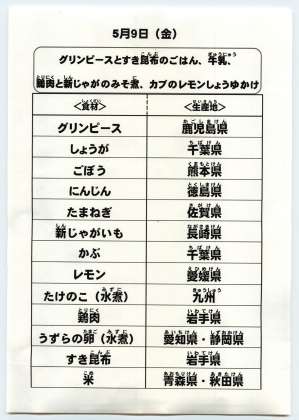 5月9日（金）
グリンピースとすき昆布のごはん、牛乳、
鶏肉と新じゃがのみそ煮、カブのレモンしょうゆかけ
＜食材＞ ＜生産地＞
グリンピース 鹿児島県
しょうが 千葉県
ごぼう 熊本県
にんじん 徳島県
たまねぎ 佐賀県
新じゃがいも 長崎県
かぶ 千葉県
レモン 愛媛県
たけのこ（水煮） 九州
鶏肉 岩手県
うずらの卵（水煮） 愛知県・静岡県
すき昆布 岩手県
米 青森県・秋田県